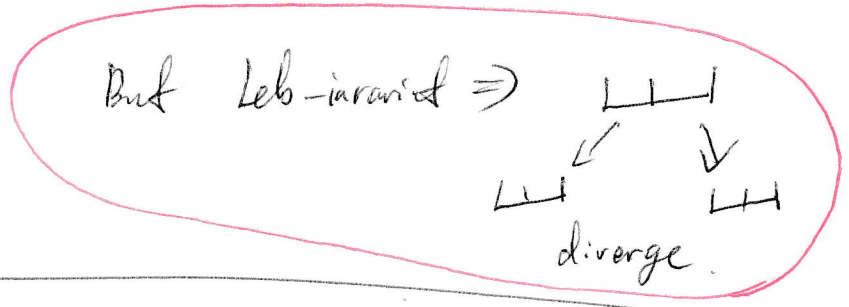 But Leb-invariant ⇒
diverge.